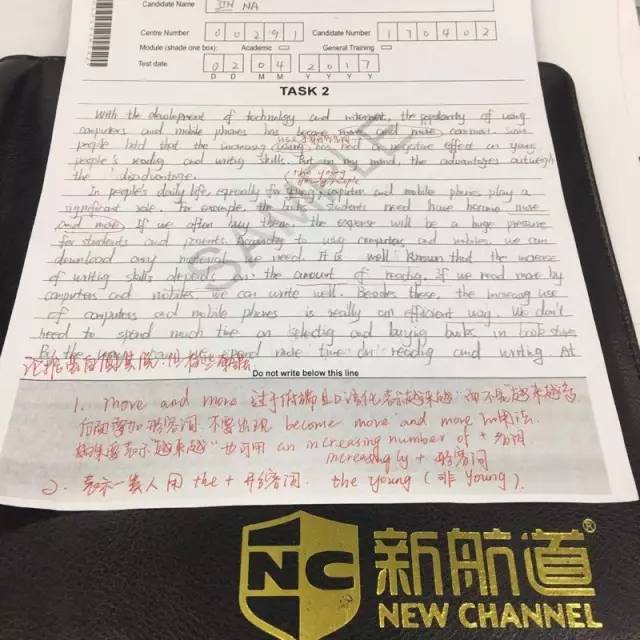 Candidate Name JIN NA
Centre Number 00291 Candidate Number 170402
Module (shade one box): Academic General Training
Test date 02 04 2017
D D M M Y Y Y Y
TASK 2
SAMPLE
With the development of technology and internet, the popularity of using
computers and mobile phones has become more and more common. Some
people hold that the increasing using has negative effect on young
people's reading and writing skills. But in my mind, the advantages outweigh
the disadvantage.
the young
In people's daily life, especially for computers and mobile phones play a
significant role. For example, the students need have become more
and more. If we often buy them the expense will be a huge pressure
for students and parents. According to using computers and mobiles, we can
download any material we need. It is well known that the increase
of writing skills the amount of reading. If we read more by
computers and mobiles, we can write well. Besides these, the increasing use
of computers and mobile phones is really an efficient way. We don't
need to spend much time on selecting and buying books in book stores
spend more time reading and writing. At
Do not write below this line
1. more and more 过于 口语化 表示越来越 而不是越来越多
后面要加形容词 不要出现 become more and more 的用法
如果要表示"越来越" 也可用 an increasing number of + 名词
increasingly + 形容词
2. 表示一类人用 the + 形容词. the young (非 young).
NC 新航道®
NEW CHANNEL